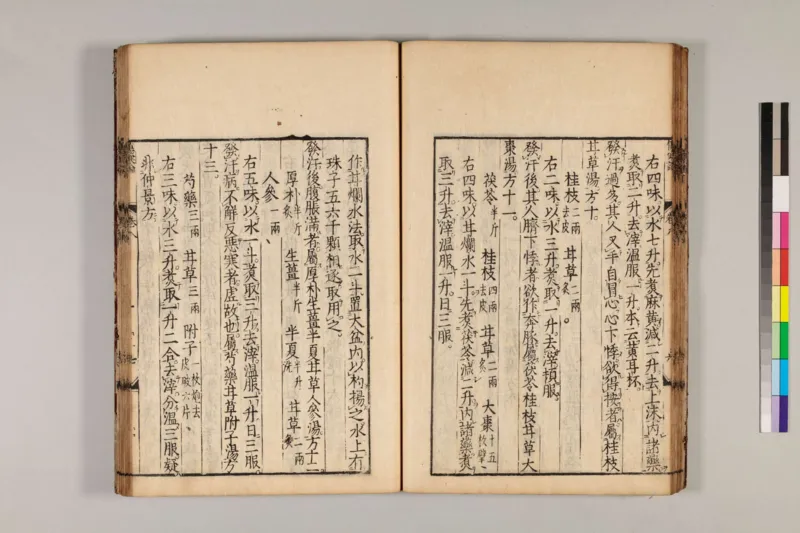 右四味以水七升先煑麻黃減一升去上沫內諸藥
煑取二升去滓溫服一升本云黃耳杯
發汗過多其人叉手自冒心心下悸欲得按者屬桂枝
甘草湯方十
桂枝二兩去皮 甘草二兩炙
右二味以水三升煑取一升去滓頓服
發汗後其人臍下悸者欲作奔豚屬茯苓桂枝甘草大
棗湯方十一
茯苓半斤 桂枝四兩去皮 甘草二兩炙 大棗十五枚擘
右四味以甘爛水一斗先煑茯苓減二升內諸藥煑
取三升去滓溫服一升日三服
作甘爛水法取水二斗置大盆內以杓揚之水上有
珠子五六千顆相逐取用之
發汗後腹脹滿者屬厚朴生薑半夏甘草人參湯方十二
厚朴半斤炙 生薑半斤 半夏半升洗 甘草二兩炙
人參一兩
右五味以水一斗煑取三升去滓溫服一升日三服
發汗病不解反惡寒者虛故也屬芍藥甘草附子湯方
十三
芍藥三兩 甘草三兩 附子一枚炮去皮破六片
右三味以水三升煑取一升二合去滓分溫三服疑
非仲景方